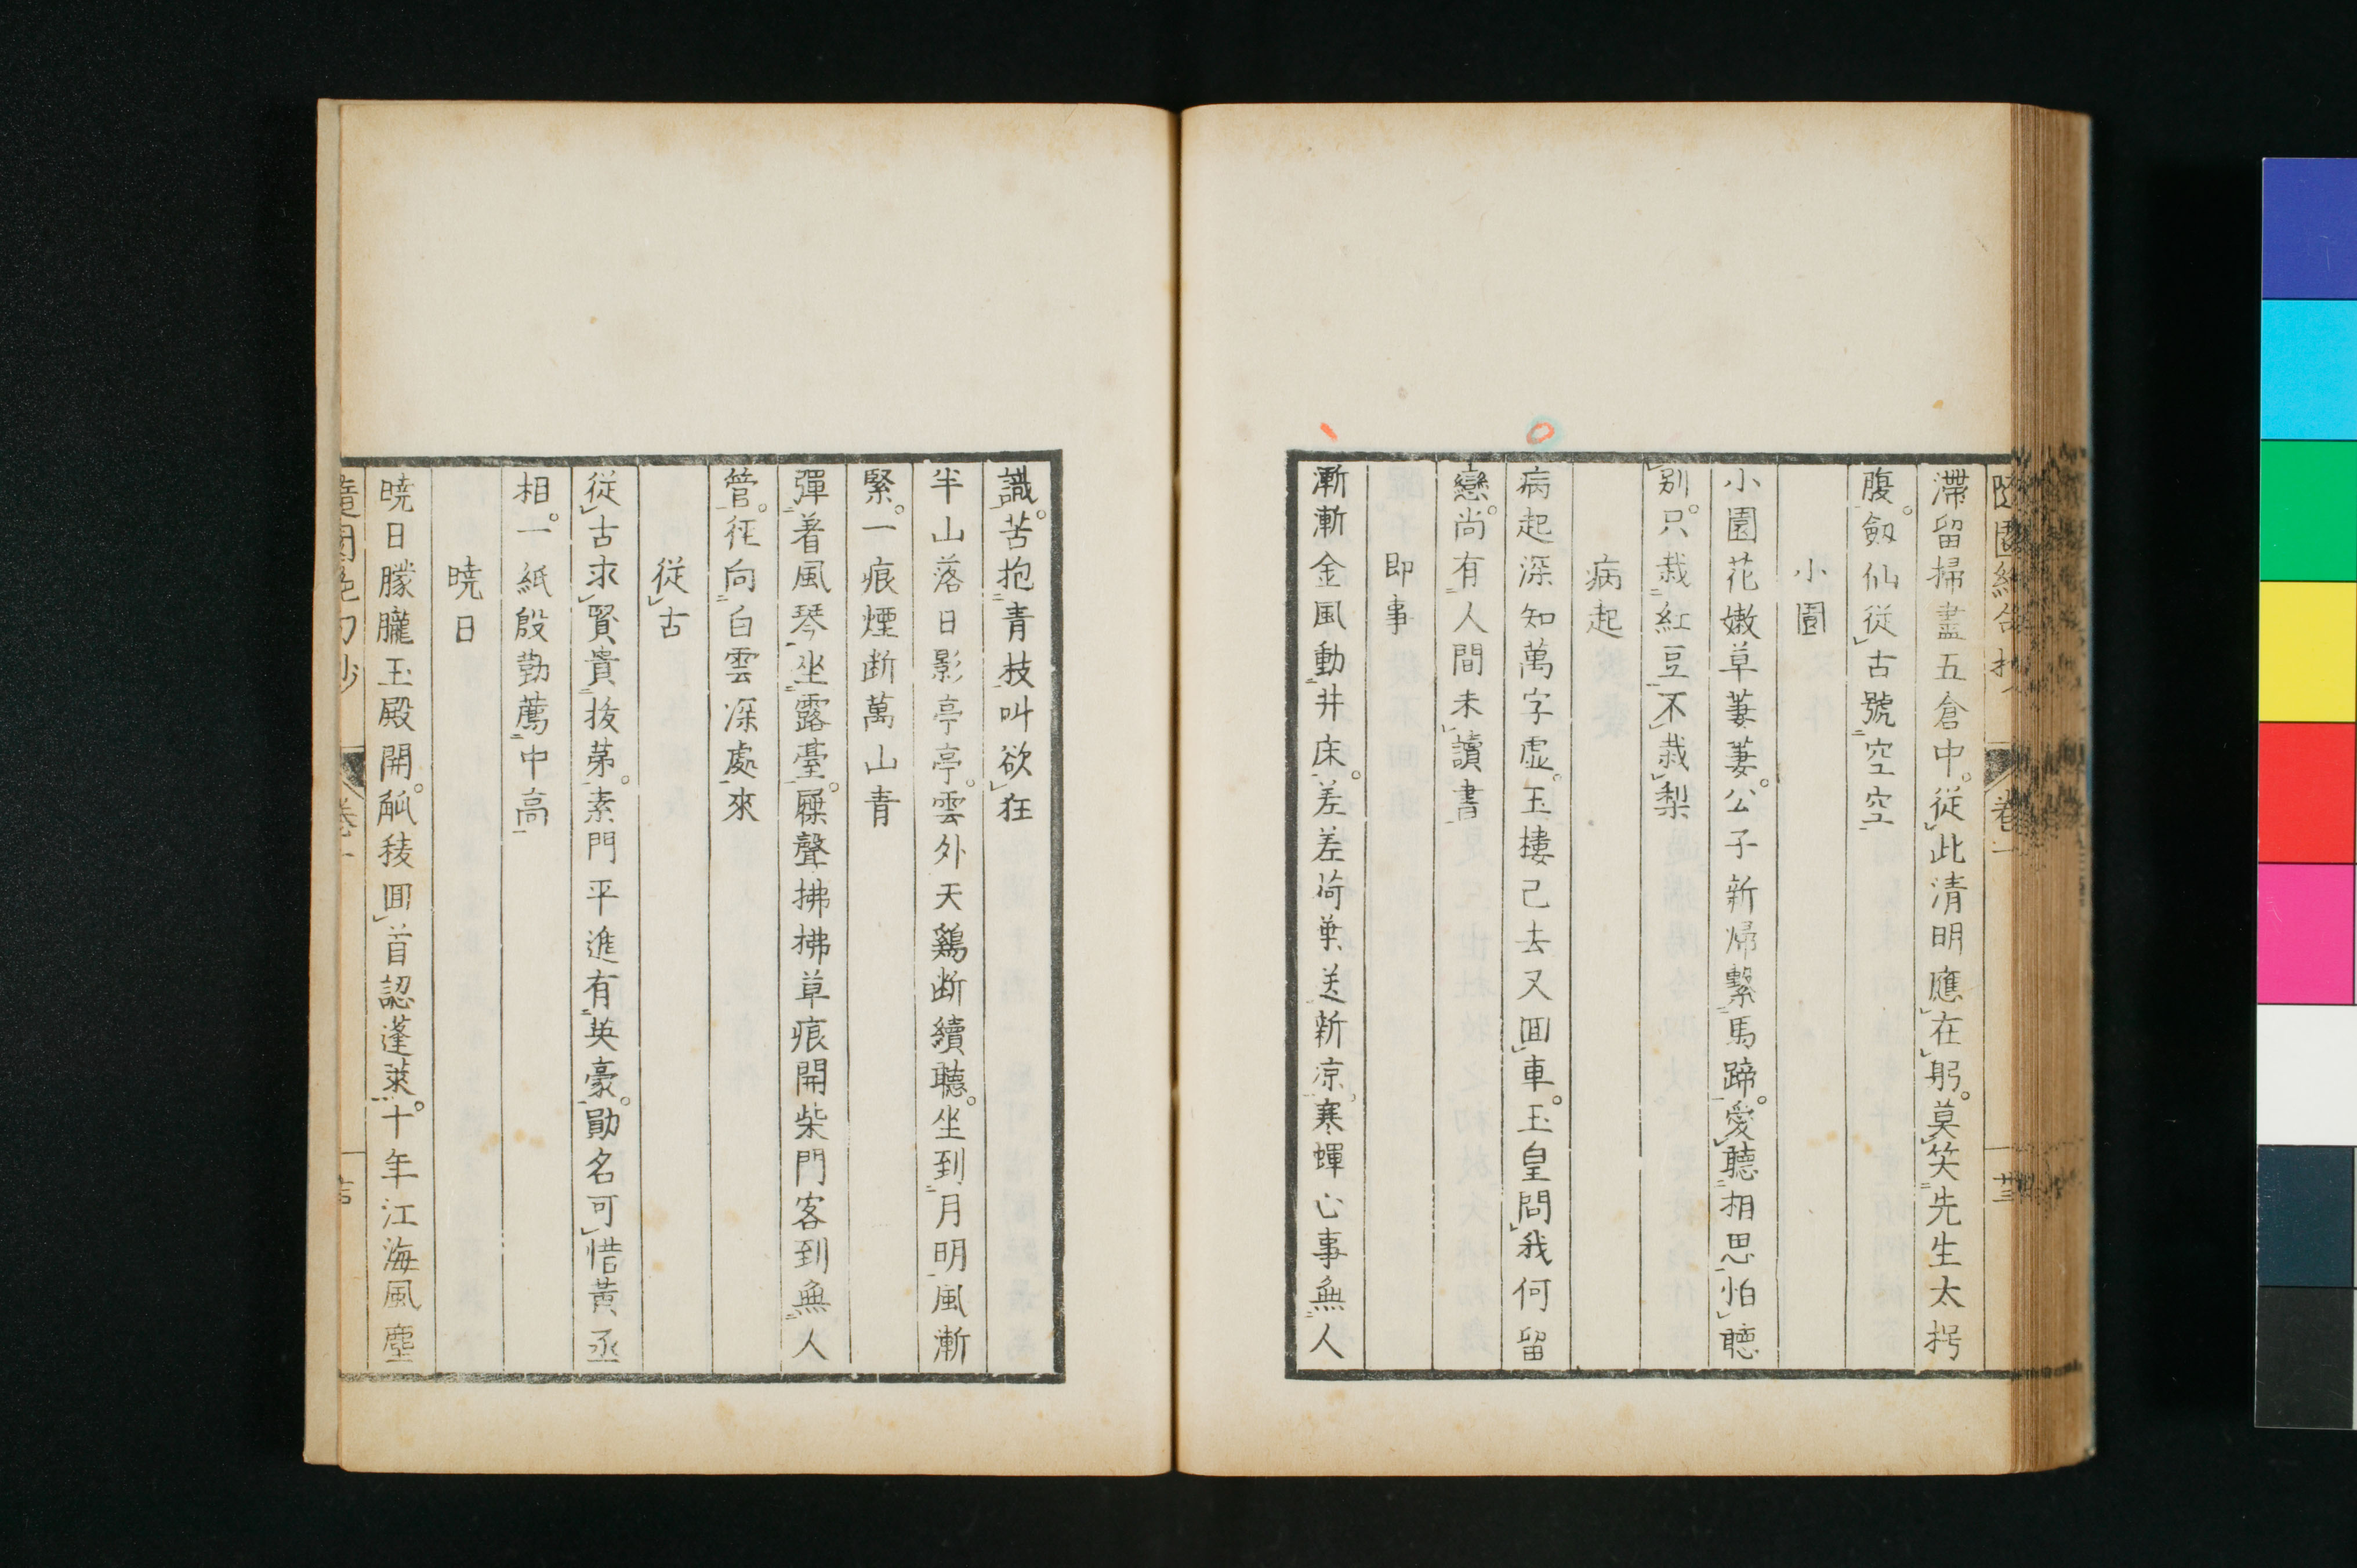 隨園絶句抄 卷一 廿三
滯留掃盡五倉中。從此清明應在躬。莫笑先生太拐
腹。劔仙從古號空空
小園
小園花嫩草萋萋。公子新帰繫馬蹄。愛聽相思怕聽
別。只栽紅豆不栽梨
病起
病起深知萬字虚。玉樓已去又囬車。玉皇問我何留
戀。尚有人間未讀書
即事
漸漸金風動井床。差差荷葉送新凉。寒蟬心事無人
識。苦抱青枝叫欲狂
半山落日影亭亭。雲外天鷄断續聽。坐到月明風漸
緊。一痕煙断萬山青
彈着風琴坐露臺。屧聲拂拂草痕開柴門客到無人
管。徃向白雲深處來
從古
從古求賢貴拔茅。素門平進有英豪。勛名可惜黃丞
相。一紙殷勤薦中高
曉日
曉日朦朧玉殿開。觚稜囬首認蓬萊。十年江海風塵
隨園絶句抄 卷一